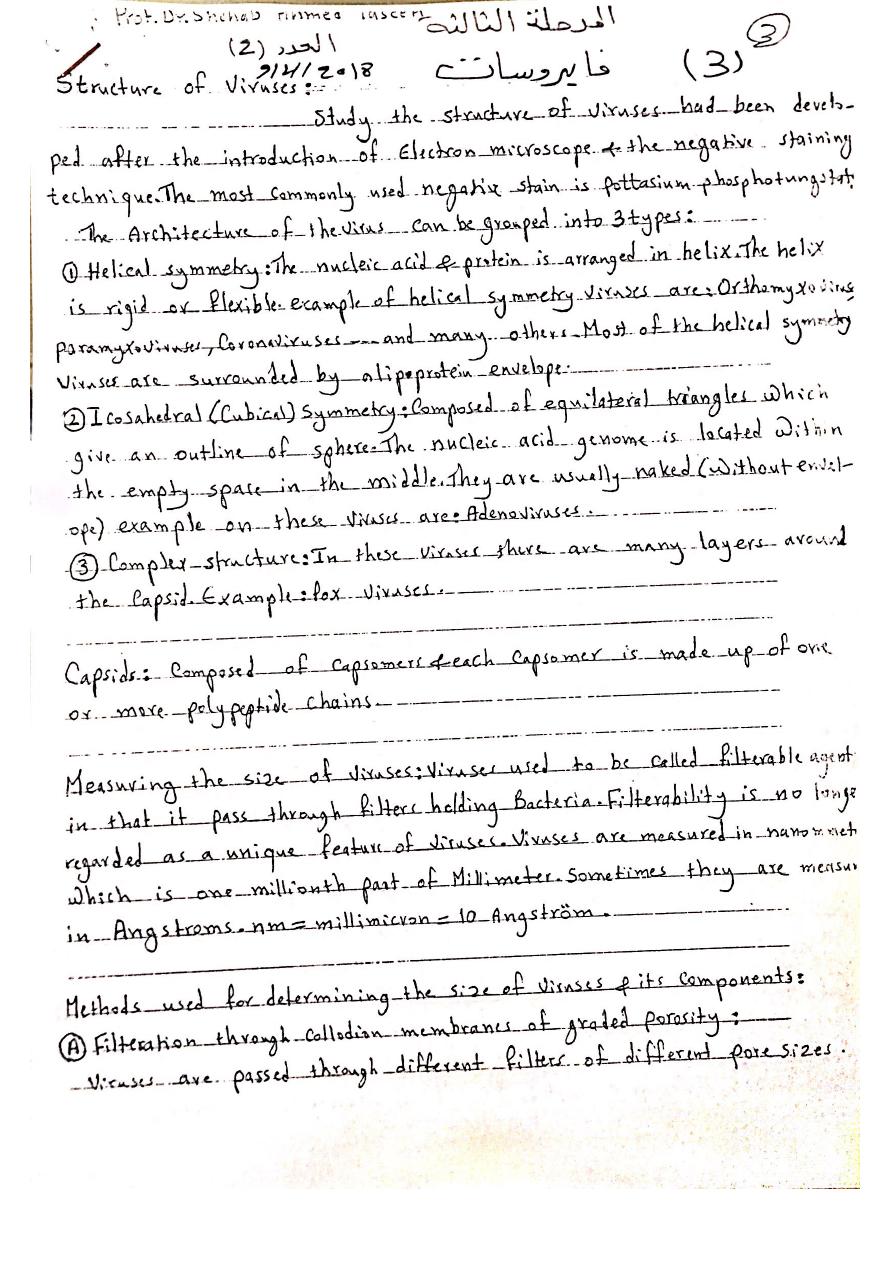 Prof. Dr. Shehab Ahmed المرحلة الثالثة (3)
العدد (2) فايروسات (3)
9/4/2018
Structure of Viruses:-
Study the structure of viruses had been develo-
ped after the introduction of Electron microscope & the negative staining
technique. The most commonly used negative stain is pottasium phosphotungstat
The Architecture of the virus can be grouped into 3 types:
① Helical symmetry: The nucleic acid & protein is arranged in helix. The helix
is rigid or flexible. example of helical symmetry viruses are: Orthomyxovirus
paramyxoviruses, Coronaviruses --- and many others. Most of the helical symmetry
Viruses are surrounded by a lipoprotein envelope.
② Icosahedral (Cubical) Symmetry: Composed of equilateral triangles which
give an outline of sphere. The nucleic acid genome is located within
the empty space in the middle. They are usually naked (Without envel-
ope) example on these viruses are: Adenoviruses.
③ Complex structure: In these viruses there are many layers around
the Capsid. Example: Pox viruses.
Capsids: Composed of Capsomers & each Capsomer is made up of one
or more polypeptide chains.
Measuring the size of viruses: Viruses used to be called filterable agent
in that it pass through filters holding Bacteria. Filterability is no longe
regarded as a unique feature of viruses. Viruses are measured in nanomet
Which is one millionth part of Millimeter. Sometimes they are measur
in Angstroms. nm = millimicron = 10 Angström.
Methods used for determining the size of Viruses & its Components:
Ⓐ Filteration through Collodian membranes of graded porosity:
Viruses are passed through different filters of different pore sizes.